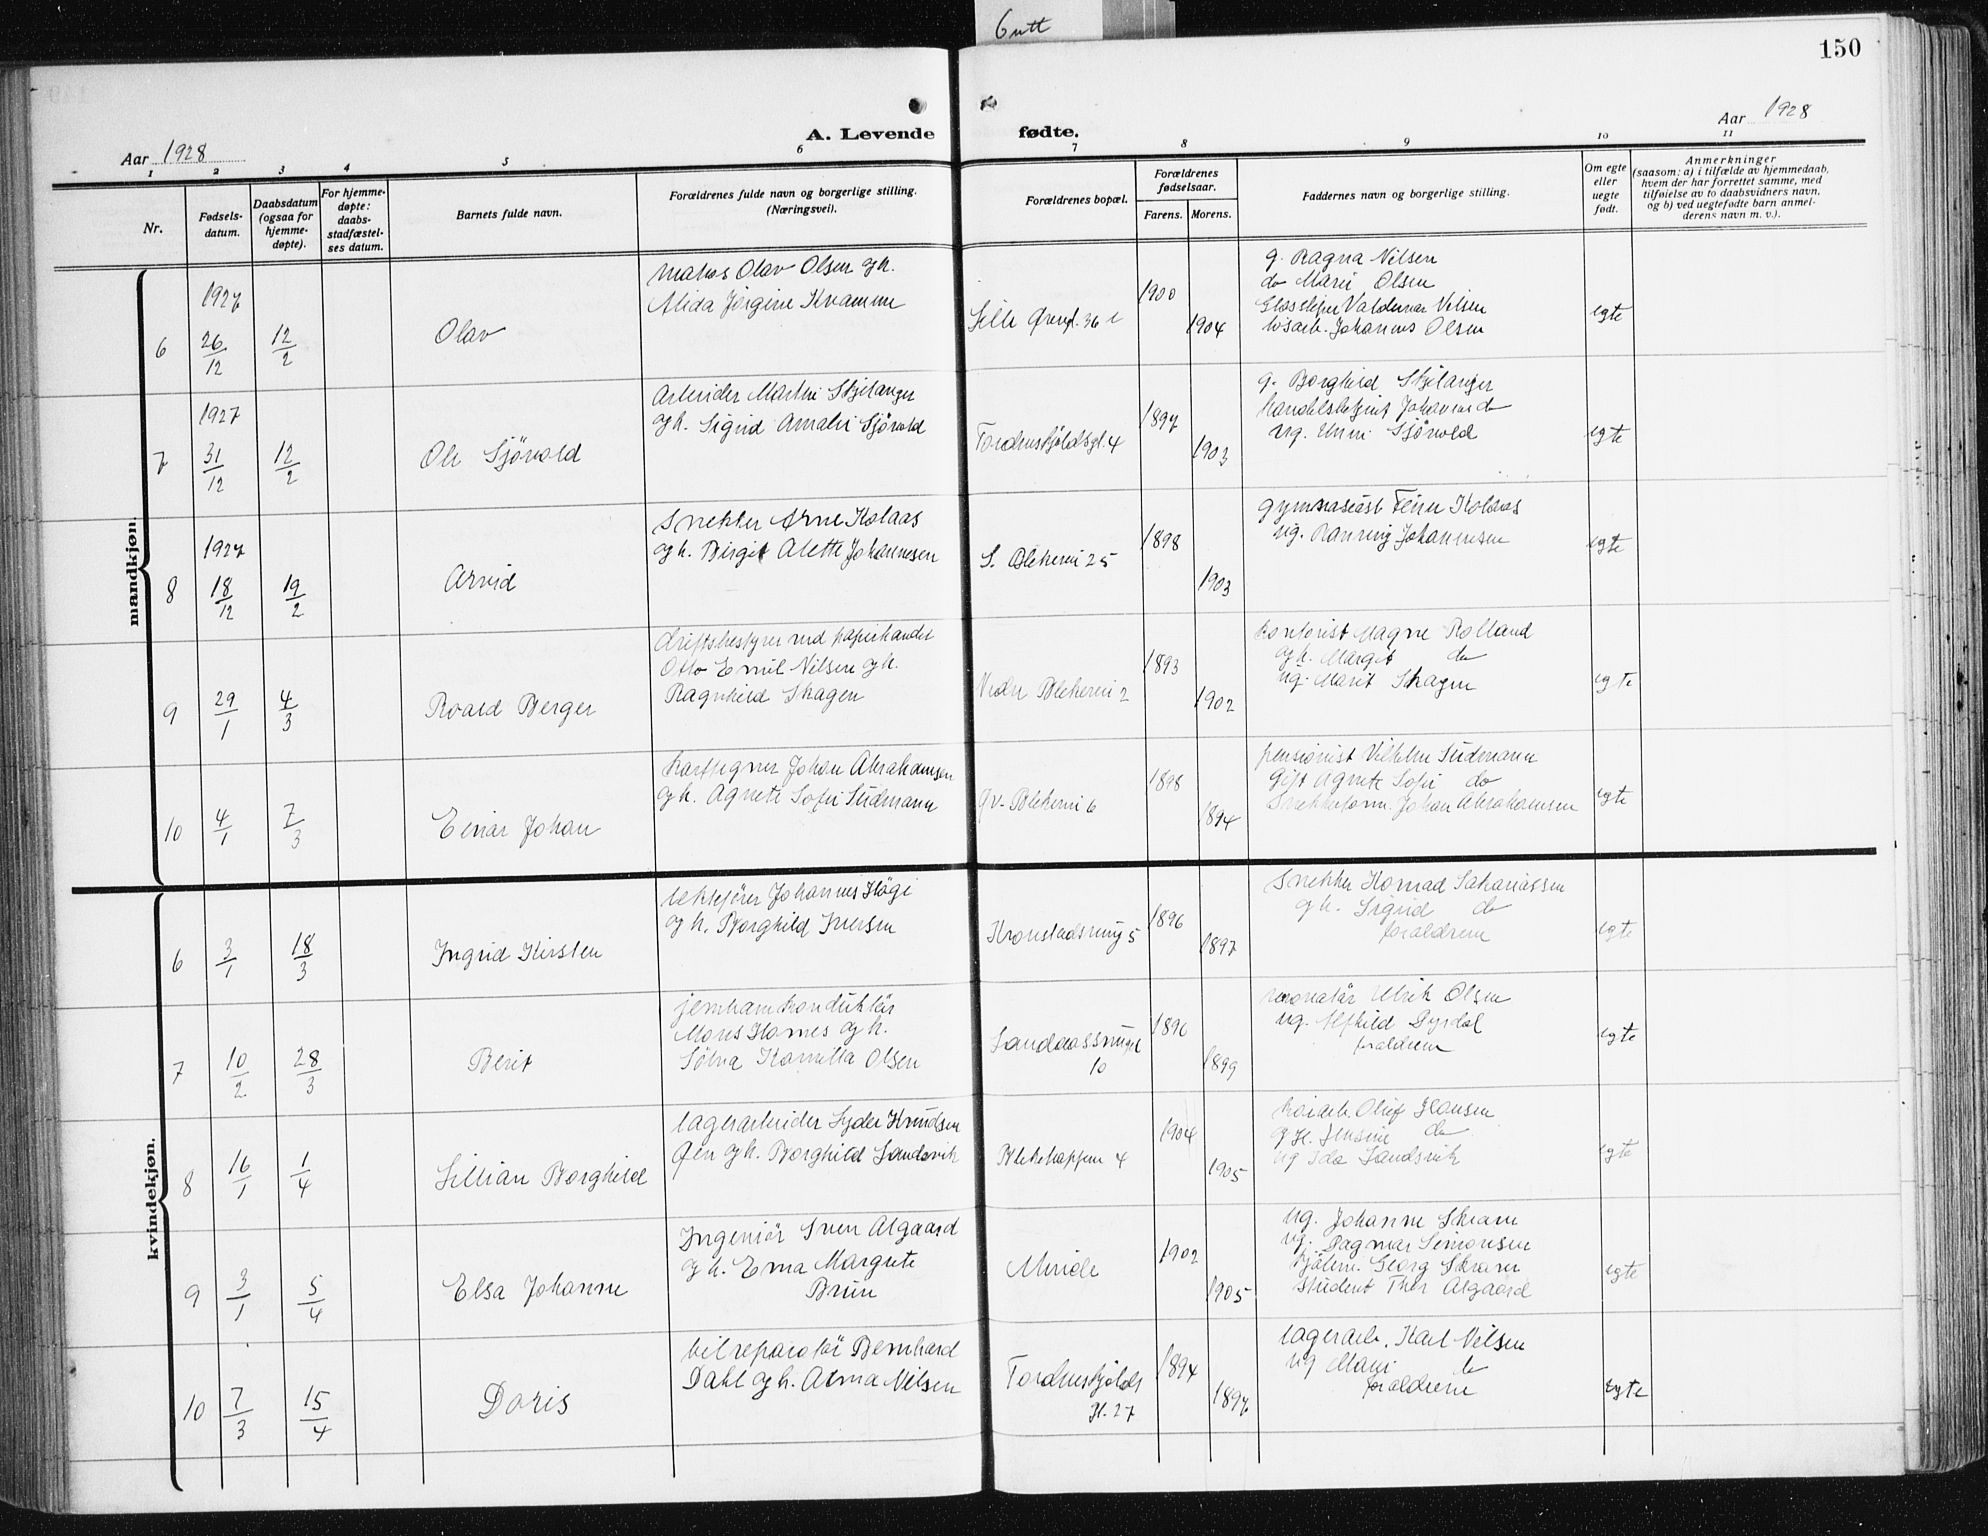 Gutt
150
Aar 1928
A. Levende fødte.
Aar 1928
1 2 3 4 5 6 7 8 9 10 11
Nr.
Fødsels-
datum.
Daabsdatum
(ogsaa for
hjemme-
døpte).
For hjemme-
døpte:
daabs-
stadfæstel-
ses datum.
Barnets fulde navn.
Forældrenes fulde navn og borgerlige stilling.
(Næringsvei).
Forældrenes bopæl.
Forældrenes
fødselsaar.
Farens. Morens.
Faddernes navn og borgerlige stilling.
Om egte
eller
uegte
født.
Anmerkninger
(saasom: a) i tilfælde av hjemmedaab,
hvem der har forrettet samme, med
tilføielse av to daabsvidners navn,
og b) ved uegtefødte barn anmel-
derens navn m. v.).
mandkjøn.
6
1927
26/12
12/2
Olav
Olav Olsen og h.
Alida Jørgine Kvamme
36
1900
1904
g. Ragna Nilsen
do Marie Olsen
Glassliper Valdemar Nilsen
Johannes Olsen
egte
7
1927
31/12
12/2
Ole Sjövold
Arbeider Martin Skjelanger
og h. Sigrid Amalie Sjövold
Tordenskjoldsgt. 4
1897
1903
g. Borghild Skjelanger
do
ug. Unni Sjövold
egte
8
1927
18/12
19/2
Arvid
Snekker Arne Kolaas
og h. Birgit Alette Johannesen
S. Blekevei 25
1898
1903
gymnasiast Kolaas
ug. Johannesen
egte
9
29/1
4/3
Roard Berger
driftsbestyrer ved papirhandel
Otto Emil Nilsen og h.
Ragnhild Skagen
Nedre Blekevei 2
1893
1902
kontorist Magne Rolland
og h. Margit do
ug. Marit Skagen
egte
10
4/1
7/3
Einar Johan
karttegner Johan Abrahamsen
og h. Agnete Sofie Südmann
Øv. Blekevei 6
1898
1894
pensionist Vilhelm Südmann
gift Agnete Sofie do
Snekkerform. Johan Abrahamsen
egte
kvindekjøn.
6
3/1
18/3
Ingrid Kirsten
Johannes Hægi
og h. Borghild Iversen
Kronstadsving 5
1896
1897
Snekker Konrad Sakariassen
og h. Sigrid do
foraldrene
egte
7
10/2
28/3
Berit
jernbanekonduktör
Mons Hornes og h.
Sölva Kamilla Olsen
Landaassvinget
10
1896
1899
Ulrik Olsen
ug. Alfhild Dyrdal
foraldrene
egte
8
16/1
1/4
Lillian Borghild
lagerarbeider Lyder Knudsen
Øen og h. Borghild Sandsvik
Blekehappen 4
1904
1905
Oluf Hansen
og h. Jensine do
ug Ida Sandsvik
egte
9
3/1
5/4
Elsa Johanne
Ingeniör Sven Algaard
og h. Erna Margrete
Brun
Minde
1902
1905
ug. Johanne Skram
ug. Dagmar Simonsen
Georg Skram
student Thor Algaard
egte
10
7/3
15/4
Doris
bilreparatör Bernhard
Dahl og h. Alma Nilsen
Tordenskjolds
gt. 27
1894
1897
lagerarb. Karl Nilsen
ug Mani do
foraldrene
egte